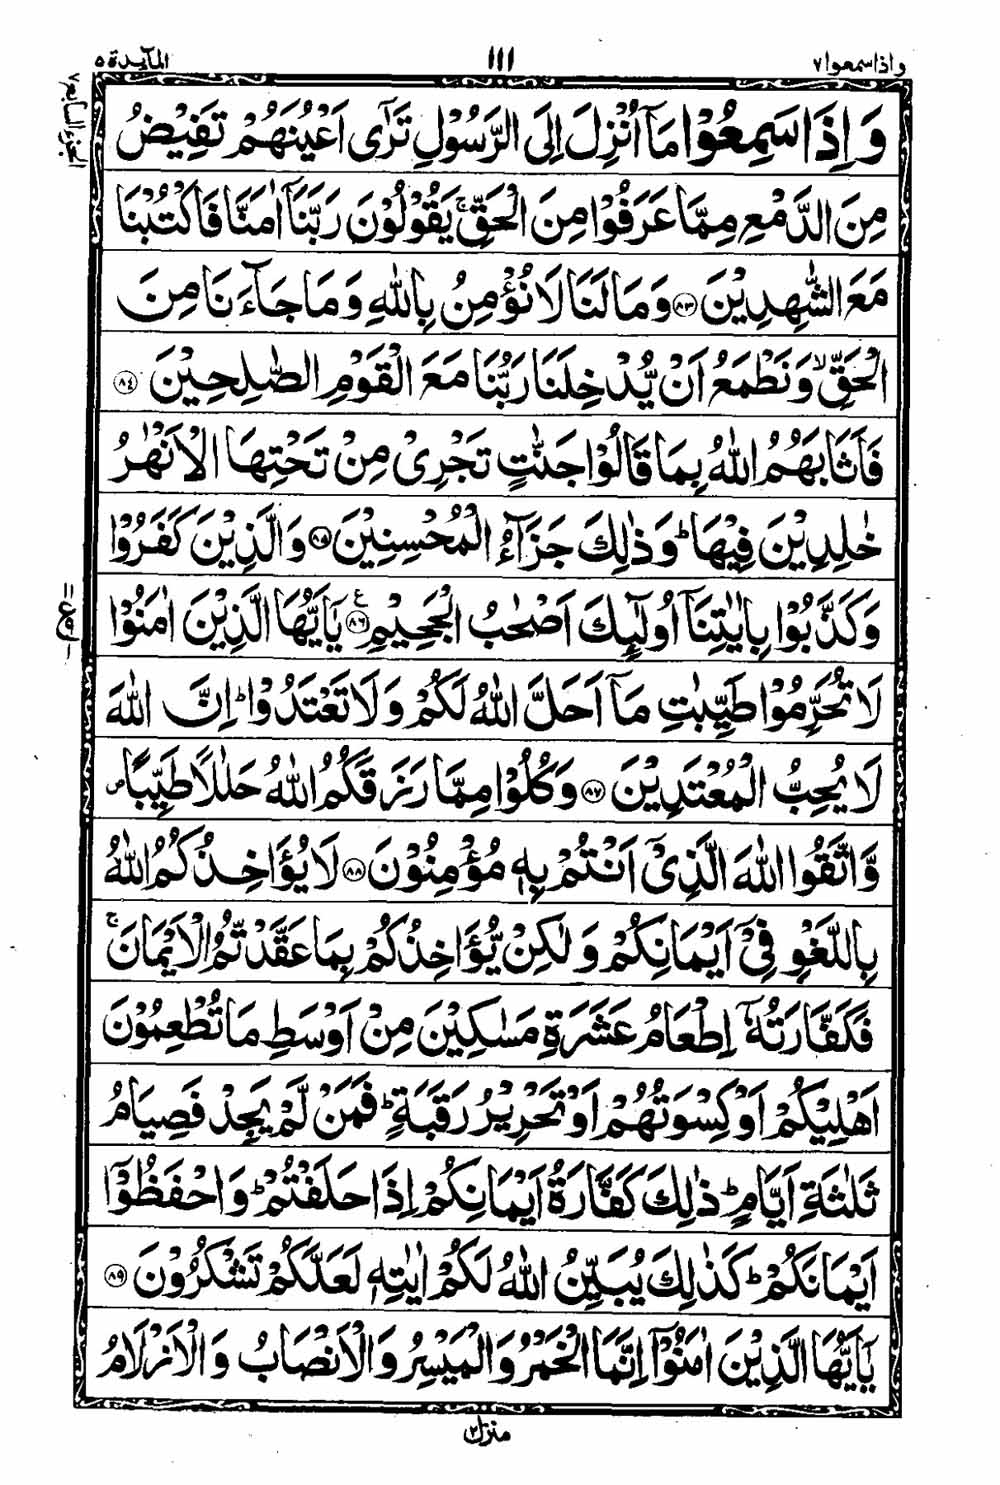 واذاسمعوا٧ ١١١ المآئدة ٥
الجزء السابع٧
وَ اِذَا سَمِعُوْا مَاۤ اُنْزِلَ اِلَى الرَّسُوْلِ تَرٰۤى اَعْيُنَهُمْ تَفِيْضُ
مِنَ الدَّمْعِ مِمَّا عَرَفُوْا مِنَ الْحَقِّۚ يَقُوْلُوْنَ رَبَّنَاۤ اٰمَنَّا فَاكْتُبْنَا
مَعَ الشّٰهِدِيْنَ ﴿٨٣﴾ وَ مَا لَنَا لَا نُؤْمِنُ بِاللّٰهِ وَ مَا جَآءَنَا مِنَ
الْحَقِّۙ وَ نَطْمَعُ اَنْ يُّدْخِلَنَا رَبُّنَا مَعَ الْقَوْمِ الصّٰلِحِيْنَ ﴿٨٤﴾
فَاَثَابَهُمُ اللّٰهُ بِمَا قَالُوْا جَنّٰتٍ تَجْرِيْ مِنْ تَحْتِهَا الْاَنْهٰرُ
خٰلِدِيْنَ فِيْهَاؕ وَ ذٰلِكَ جَزَآءُ الْمُحْسِنِيْنَ ﴿٨٥﴾ وَ الَّذِيْنَ كَفَرُوْا
وَ كَذَّبُوْا بِاٰيٰتِنَاۤ اُولٰٓئِكَ اَصْحٰبُ الْجَحِيْمِ ﴿٨٦﴾ ع يٰۤاَيُّهَا الَّذِيْنَ اٰمَنُوْا
لَا تُحَرِّمُوْا طَيِّبٰتِ مَاۤ اَحَلَّ اللّٰهُ لَكُمْ وَ لَا تَعْتَدُوْاؕ اِنَّ اللّٰهَ
لَا يُحِبُّ الْمُعْتَدِيْنَ ﴿٨٧﴾ وَ كُلُوْا مِمَّا رَزَقَكُمُ اللّٰهُ حَلٰلًا طَيِّبًا۪
وَّ اتَّقُوا اللّٰهَ الَّذِيْۤ اَنْتُمْ بِهٖ مُؤْمِنُوْنَ ﴿٨٨﴾ لَا يُؤَاخِذُكُمُ اللّٰهُ
بِاللَّغْوِ فِيْۤ اَيْمَانِكُمْ وَ لٰكِنْ يُّؤَاخِذُكُمْ بِمَا عَقَّدْتُّمُ الْاَيْمَانَۚ
فَكَفَّارَتُهٗۤ اِطْعَامُ عَشَرَةِ مَسٰكِيْنَ مِنْ اَوْسَطِ مَا تُطْعِمُوْنَ
اَهْلِيْكُمْ اَوْ كِسْوَتُهُمْ اَوْ تَحْرِيْرُ رَقَبَةٍؕ فَمَنْ لَّمْ يَجِدْ فَصِيَامُ
ثَلٰثَةِ اَيَّامٍؕ ذٰلِكَ كَفَّارَةُ اَيْمَانِكُمْ اِذَا حَلَفْتُمْؕ وَ احْفَظُوْۤا
اَيْمَانَكُمْؕ كَذٰلِكَ يُبَيِّنُ اللّٰهُ لَكُمْ اٰيٰتِهٖ لَعَلَّكُمْ تَشْكُرُوْنَ ﴿٨٩﴾
يٰۤاَيُّهَا الَّذِيْنَ اٰمَنُوْۤا اِنَّمَا الْخَمْرُ وَ الْمَيْسِرُ وَ الْاَنْصَابُ وَ الْاَزْلَامُ
منزل٢